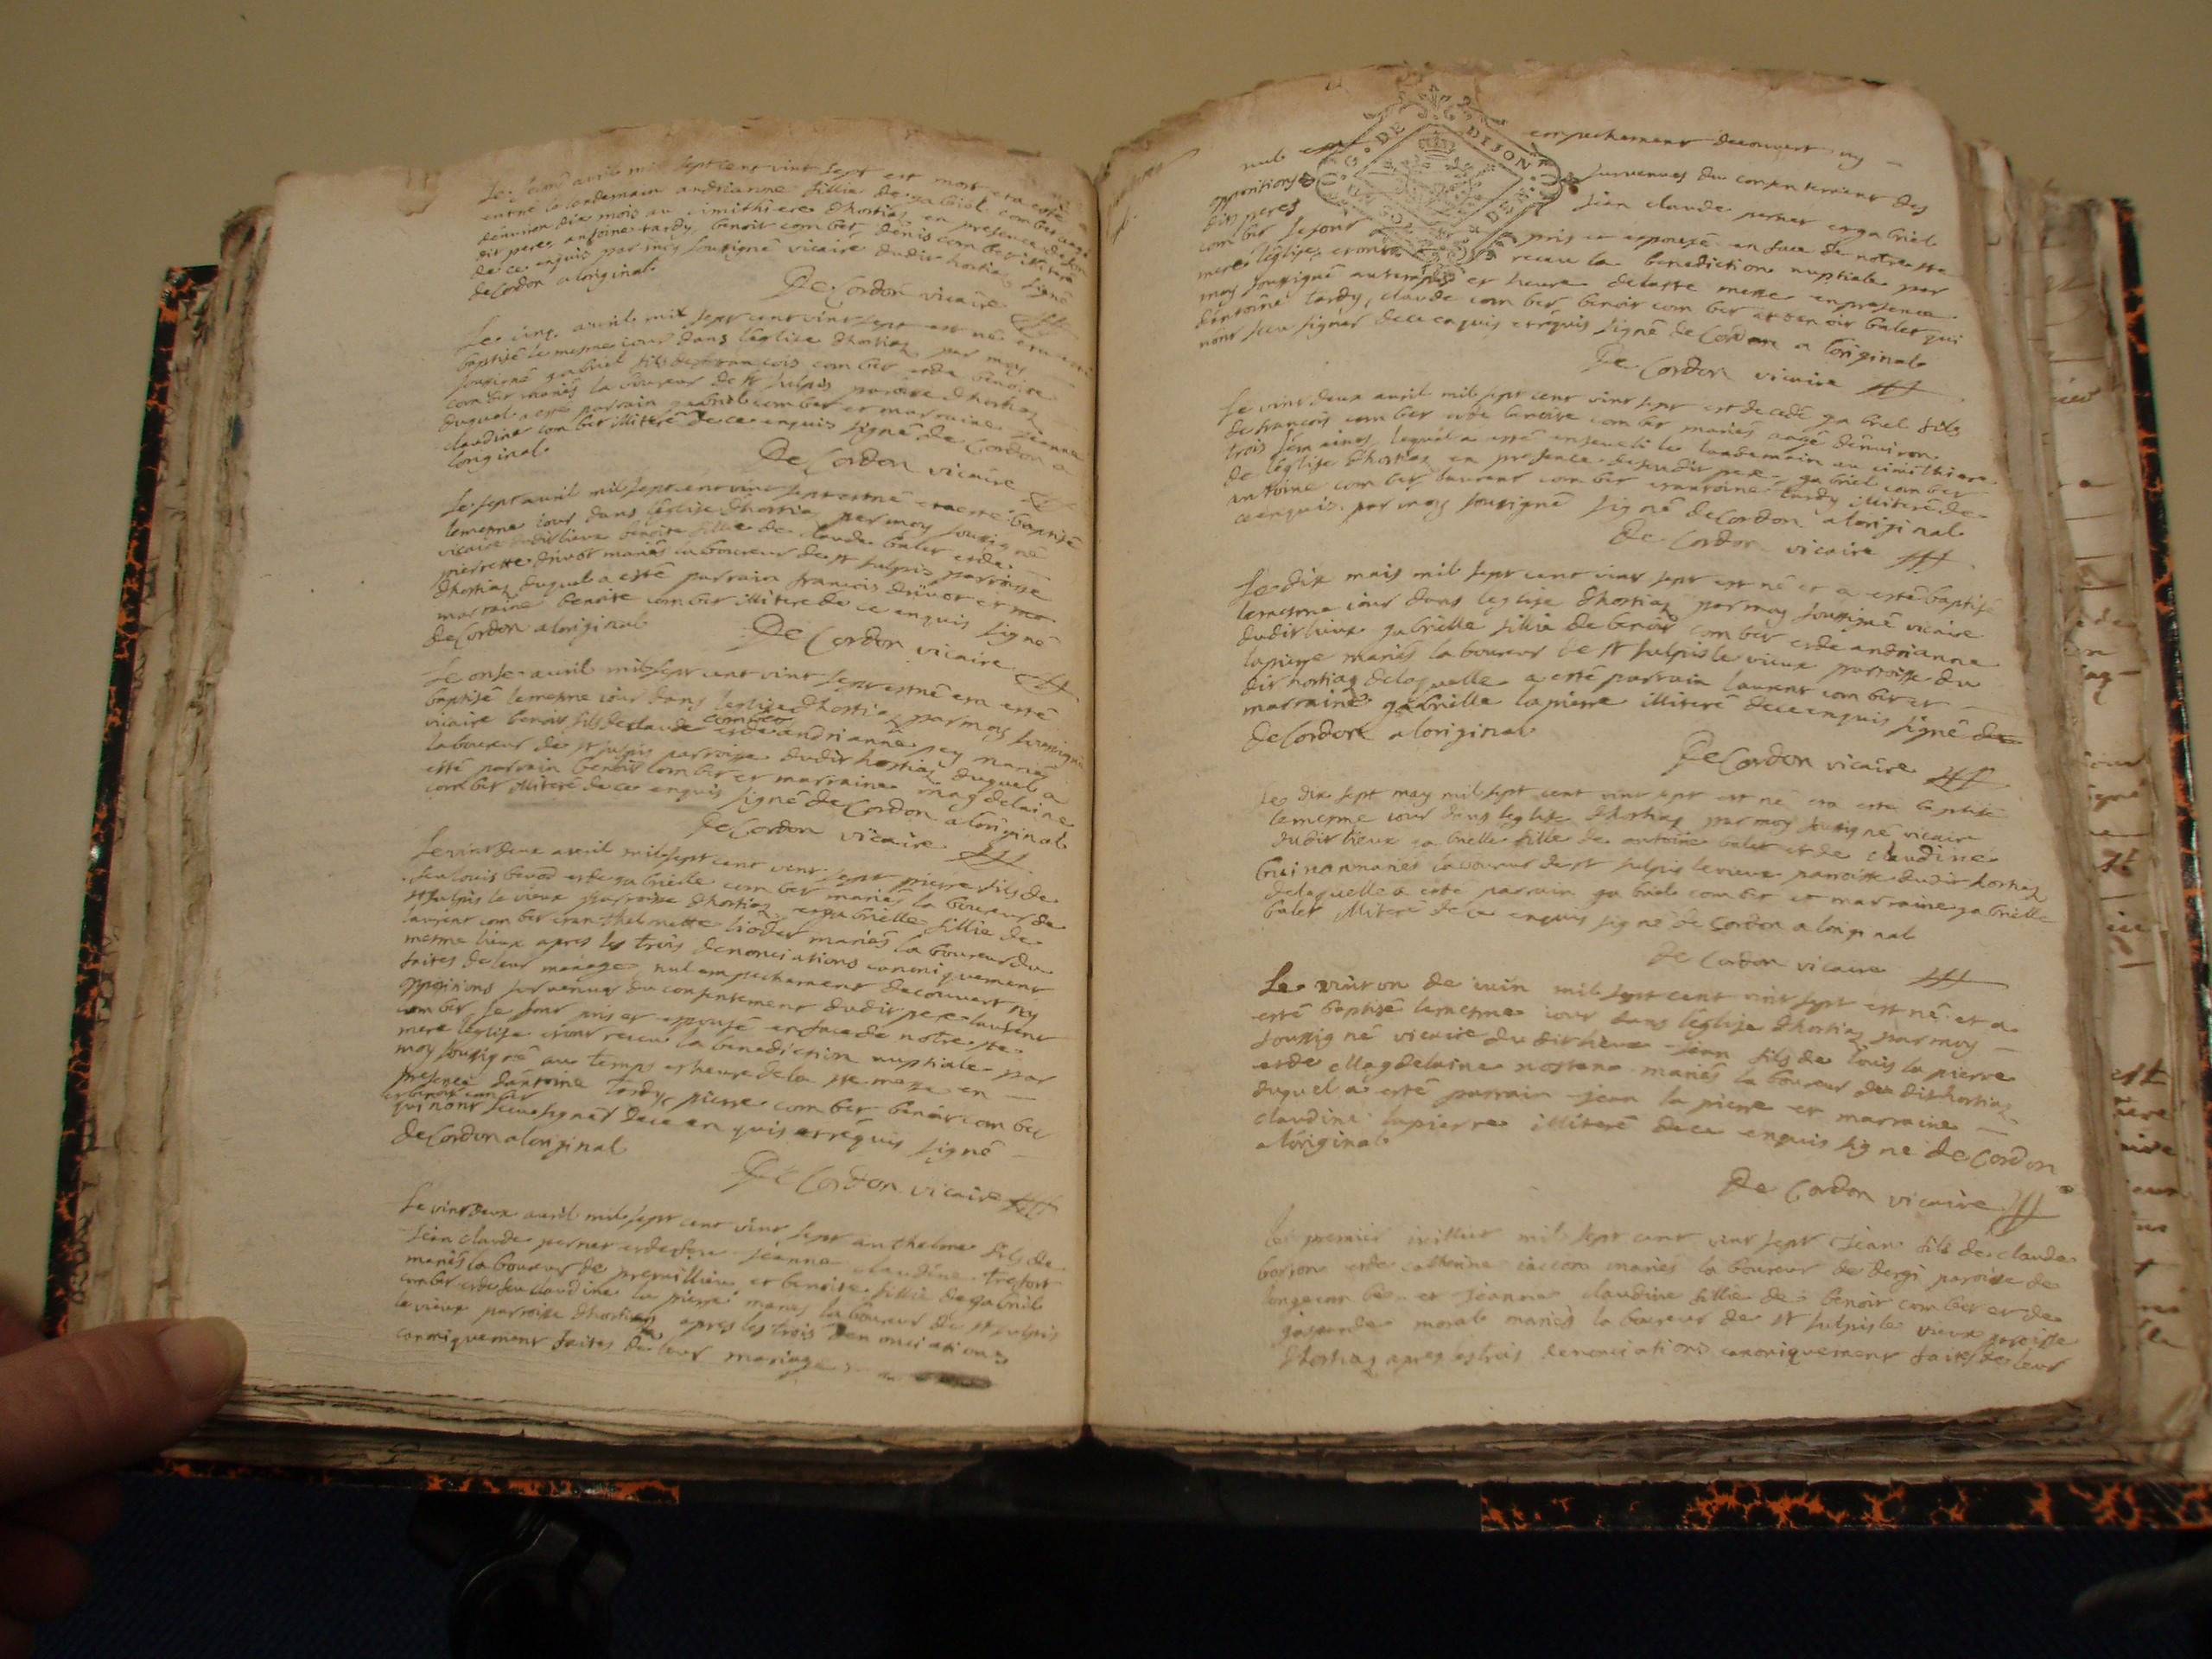 avril mil sept cent vint sept est mort et a esté
enteré le lendemain andrianne fillie de gabriel comber aagé
denviron dix mois au cimithiere dhostiaz en presence de son
dit pere, antoine tardy, benoit comber denis comber illiteré
de ce enquis par moy sousigné vicaire dudit hostiaz signé
deCordon a loriginal
De Cordon vicaire
Le cinq avril mil sept cent vint sept est né et a esté
baptisé le mesme iour dans leglise dhostiaz par moy
sousigné gabriel fils de francois comber et de benoite
comber mariés laboureur de st sulpis paroisse dhostiaz
duquel a esté parrain gabriel comber et marraine jeanne
claudine comber illiteré de ce enquis signé de Cordon a
loriginal
De Cordon vicaire
Le sept avril mil sept cent vint sept est né et a esté baptisé
lemesme iour dans leglise dhostiaz par moy sousigné
vicaire dudit lieux benoite fillie de claude balet et de
pierrette drivot mariés laboureur de st sulpis parroisse
dhostiaz duquel a esté parrain francois drivot et ma
marraine benoite comber illiteré de ce enquis signé
deCordon aloriginal
De Cordon vicaire
Le onse avril mil sept cent vint sept est né et a esté
baptisé lemesme iour dans leglise dhostiaz par moy sousigné
vicaire benoit fils de claude comber et de andrianne pey mariés
laboureur de st sulpis parroisse dudit hostiaz duquel a
esté parrain benoit comber et marraine magdelaine
comber illiteré de ce enquis signé de Cordon a loriginal
deCordon vicaire
Le vint deux avril mil sept cent vint sept pierre fils de
feu louis et de gabrielle comber mariés laboureur de
st sulpis le vieux parroisse dhostiaz et gabrielle fillie de
laurent comber et anthelmette mariés laboureur du
mesme lieux apres les trois denonciations canoniquement
faites de leur mariage nul empechement decouvert ny
oppositions survenues du consentement dudit pere laurent
comber se sont pris et epousé en face de notre ste
mere leglise et ont receu la benediction nuptiale par
moy sousigné au temps et heure de la ste messe en
presence dantoine tardy, pierre comber benoit comber
et benoit comber
qui nont sceu signer de ce enquis et réquis signé
deCordon a loriginal
De Cordon vicaire
Le vint deux avril mil sept cent vint sept anthelme fils de
jean claude pernet et de feu jeanne claudine tresort
mariés laboureur de premillieu et benoite fillie de gabriel
comber et de feu claudine la pierre mariés laboureur de st sulpis
le vieux parroisse dhostiaz apres les trois denonciations
canoniquement faites de leur mariage
nul empechement decouvert ny
DE DIJON
oppositions survenues du consentement des
dits peres jean claude pernet et gabriel
comber se sont pris et epousé en face de notre ste
mere leglise et ont receu la benediction nuptiale par
moy sousigné au temps et heure de la ste messe en presence
dantoine tardy, claude comber benoit comber et benoit balet qui
nont sceu signer de ce enquis et réquis signé de Cordon a loriginal
De Cordon vicaire
Le vint deux avril mil sept cent vint sept est decedé gabriel fils
de francois comber et de benoite comber mariés aagé denviron
trois semaines, lequel a esté enseveli le landemain au cimithiere
de leglise dhostiaz en presence de sondit pere, gabriel comber
antoine comber laurent comber et antoine tardy illiteré de
ce enquis par moy sousigné signé deCordon aloriginal
De Cordon vicaire
Le dix mais mil sept cent vint sept est né et a esté baptisé
lemesme iour dans leglise dhostiaz par moy sousigné vicaire
dudit lieux gabrielle fillie de benoit comber et de andrianne
lapierre mariés laboureur de st sulpis le vieux parroisse du
dit hostiaz delaquelle a esté parrain laurent comber et
marraine gabrielle lapierre illiteré de ce enquis signé
deCordon aloriginal
DeCordon vicaire
Le dix sept may mil sept cent vint sept est né et a esté baptisé
lemesme iour dans leglise dhostiaz par moy sousigné vicaire
dudit lieux gabrielle fillie de antoine balet et de claudine
mariés laboureur de st sulpis le vieux parroisse dudit hostiaz
delaquelle a esté parrain gabriel comber et marraine gabrielle
balet illiteré de ce enquis signé de Cordon a loriginal
De Cordon vicaire
Le vint un de iuin mil sept cent vint sept est né et a
esté baptisé lemesme iour dans leglise dhostiaz par moy
sousigné vicaire du dit lieux jean fils de louis la pierre
et de Magdelaine mariés laboureur du dit hostiaz
duquel a esté parrain jean la pierre et marraine
claudine lapierre illiteré de ce enquis signé de Cordon
a loriginal
De Cordon vicaire
Le premier iuillet mil sept cent vint sept jean fils de claude
et de catherine mariés laboureur de paroisse de
et jeanne claudine fillie de benoit comber et de
moral mariés laboureur de st sulpis le vieux paroisse
dhostiaz apres les trois denonciations canoniquement faites de leur